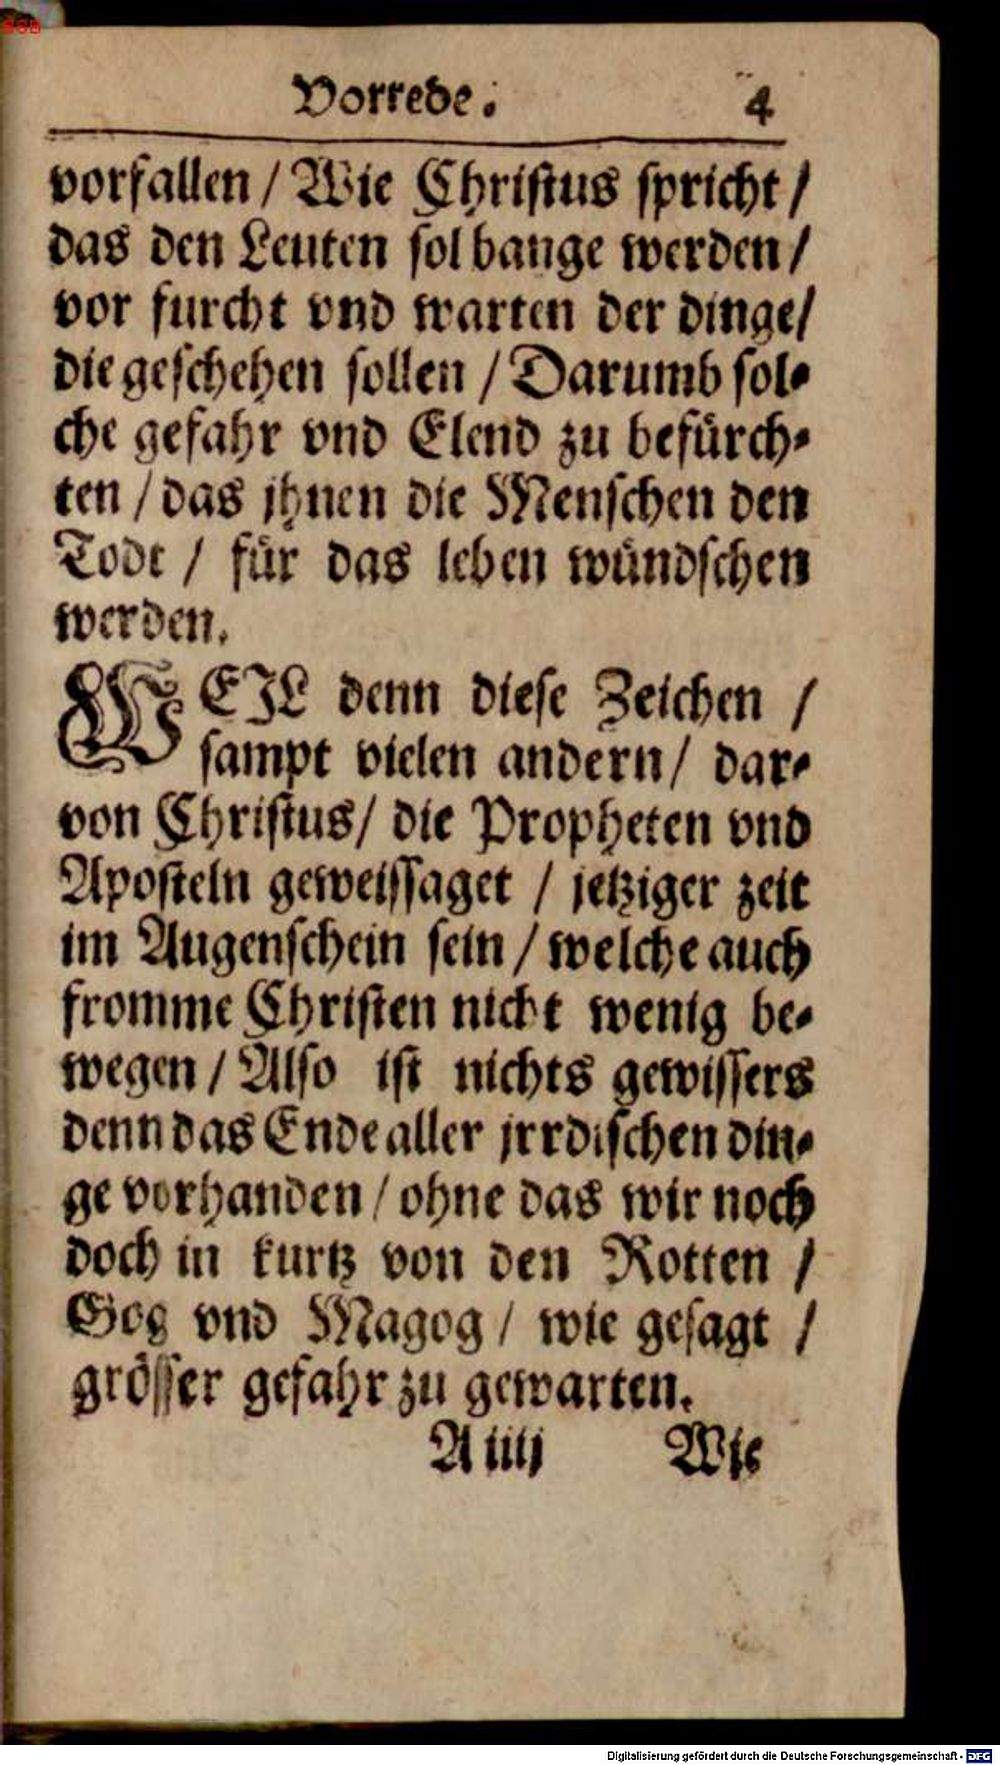 Vorrede. 4
vorfallen / Wie Christus spricht /
das den Leuten sol bange werden /
vor furcht vnd warten der dinge /
die geschehen sollen / Darumb sol-
che gefahr vnd Elend zu befürch-
ten / das jhnen die Menschen den
Todt / für das leben wündschen
werden.
WEJL denn diese Zeichen /
sampt vielen andern / dar-
von Christus / die Propheten vnd
Aposteln geweissaget / jetziger zeit
im Augenschein sein / welche auch
fromme Christen nicht wenig be-
wegen / Also ist nichts gewissers
denn das Ende aller jrrdischen din-
ge vorhanden / ohne das wir noch
doch in kurtz von den Rotten /
Gog vnd Magog / wie gesagt /
grösser gefahr zu gewarten.
A iiij Wie
Digitalisierung gefördert durch die Deutsche Forschungsgemeinschaft - DFG